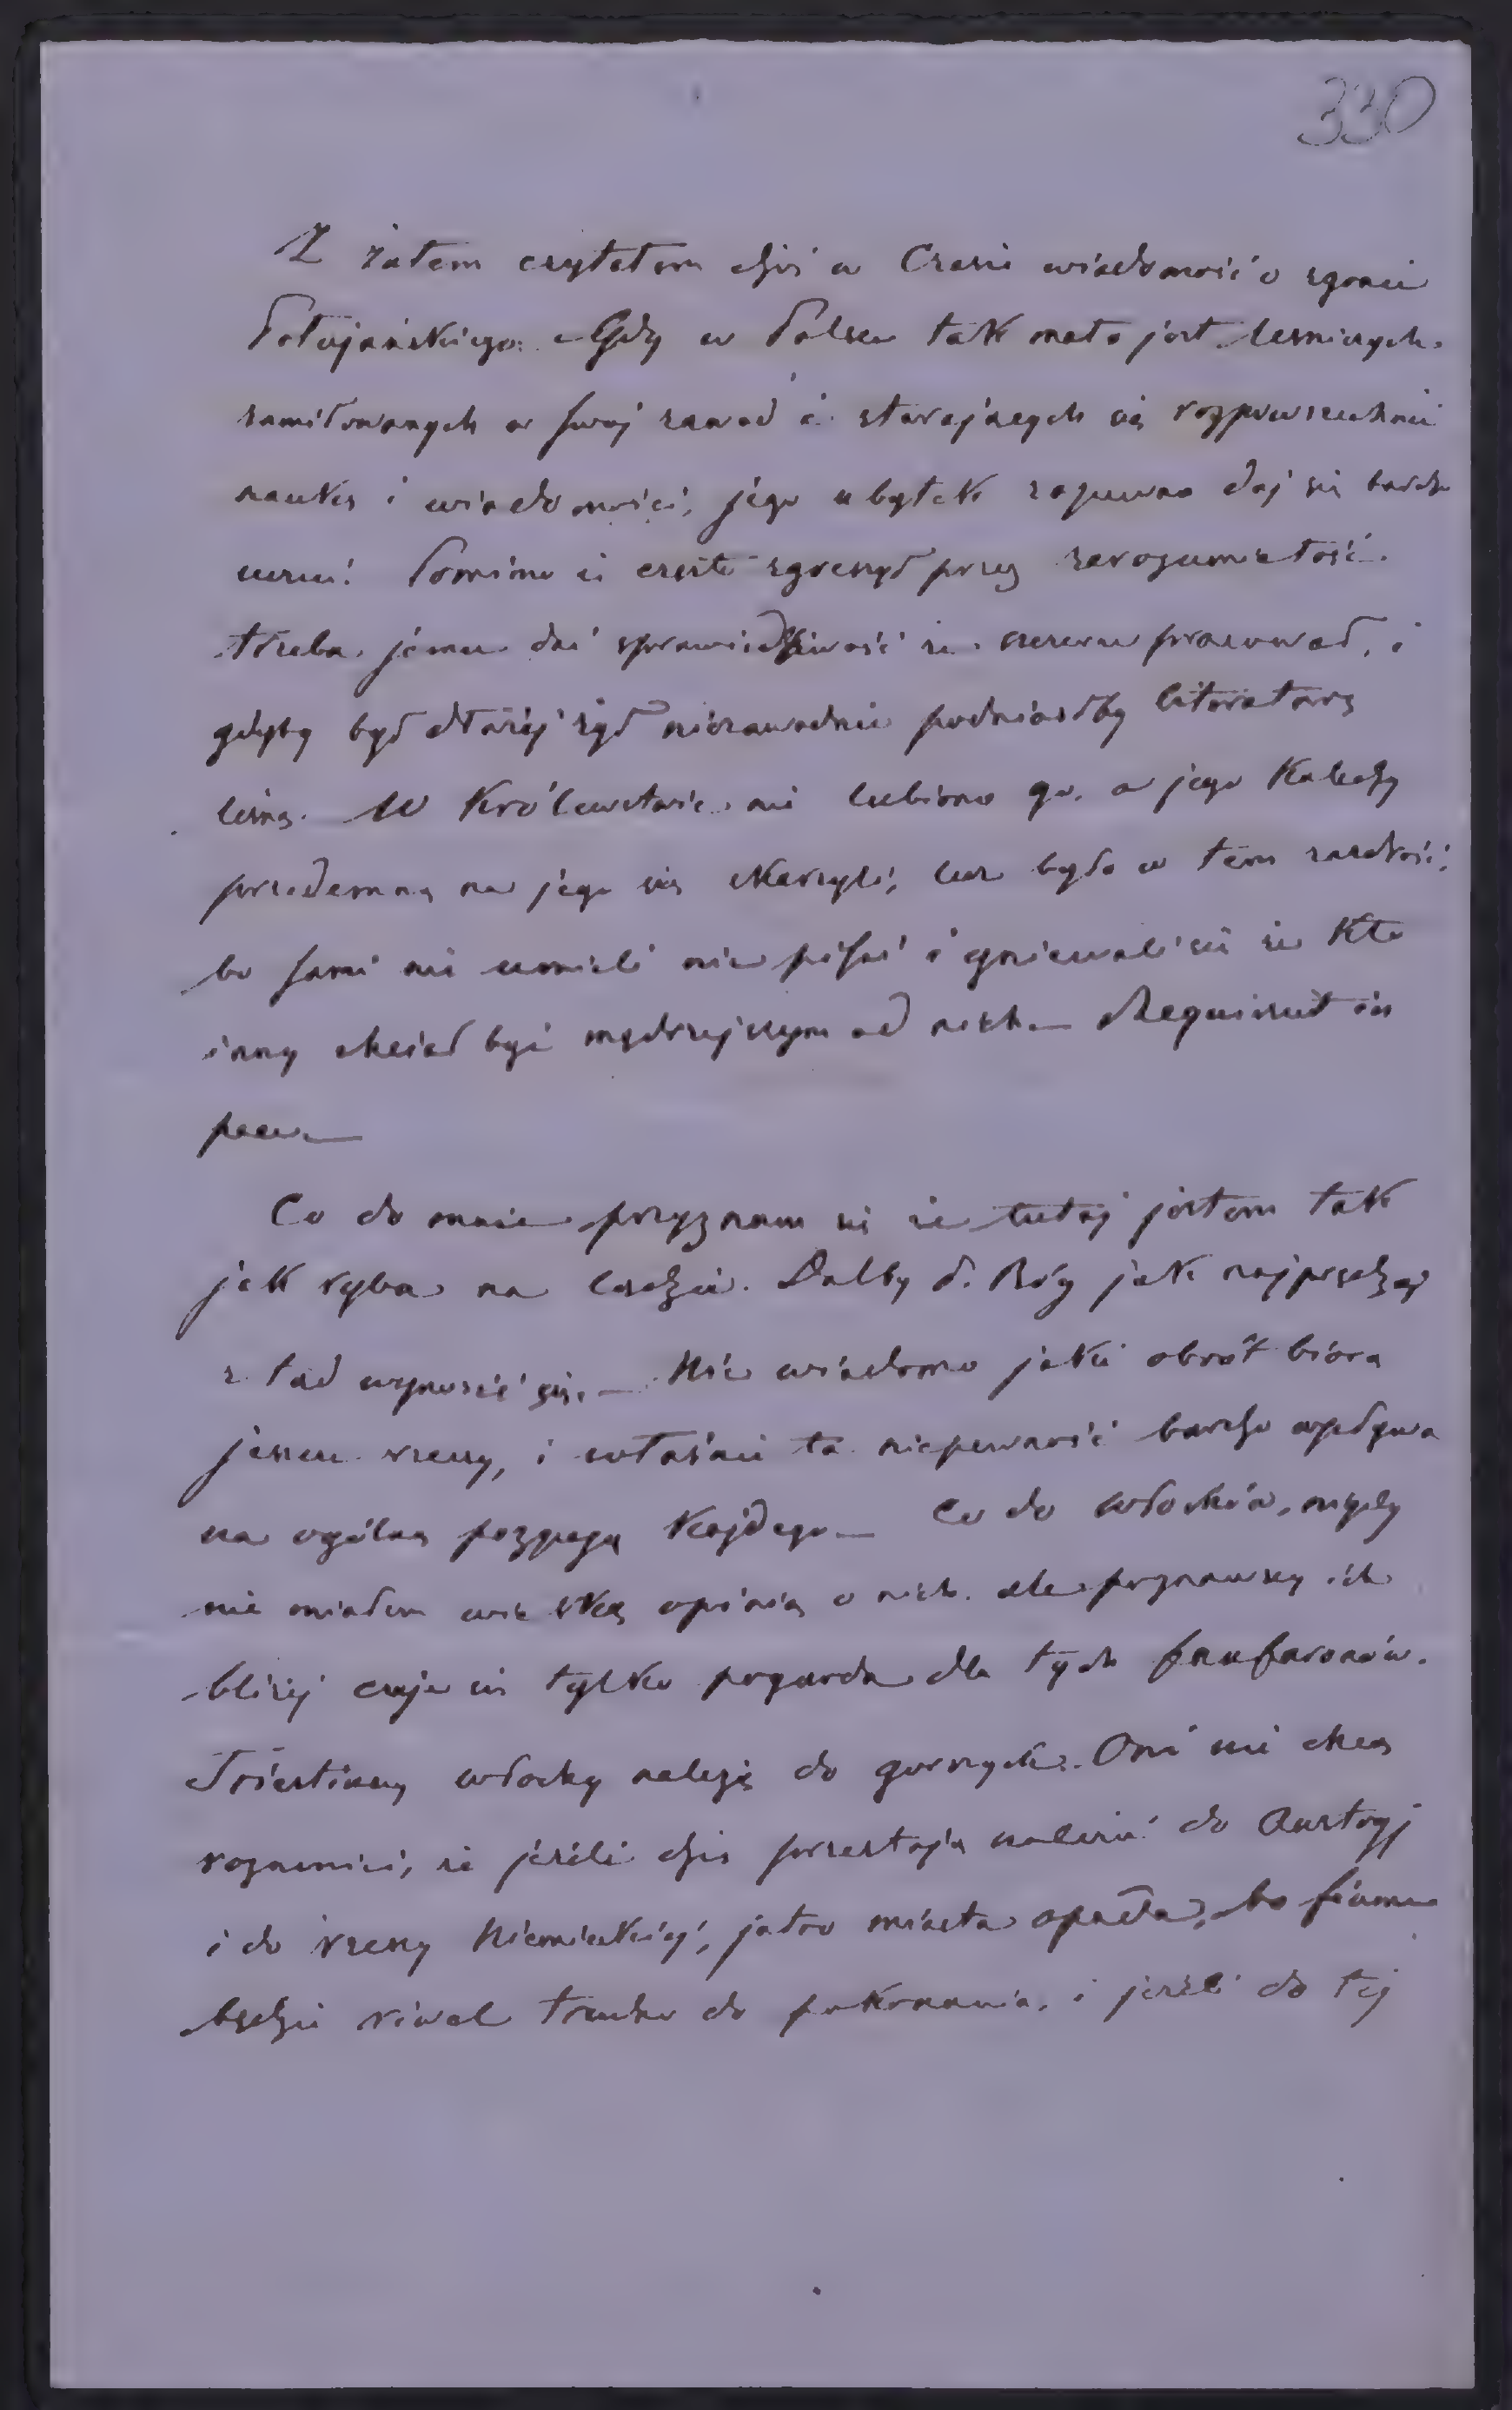 330
Z żalem czytałem dziś w Czasie wiadomość o zgonie
Połujańskiego. Gdy w Polsce tak mało jest leśniczych
zamiłowanych w swój zawód i starających się rozpowszechnić
naukę i wiadomości, jego ubytek zapewno daj się bardzo
uczuć! Pomimo iż często zgrzeszył przez zarozumiałość
trzeba jemu dać sprawiedliwość że szczerze pracował, i
gdyby był dłużéj żył niezawodnie podniósłby literaturę
leśną. W Królewstwie nie lubiono go, a jego Koledzy
przedemną na jego się skarzyli, lecz było w tem zazdrość;
bo sami nie umieli nic pisać i gniewali się że kto
inny chciał być mędrzejszym od nich — Requiescat in
pace —
Co do mnie przyznam się że tutaj jestem tak
jak ryba na lądzie. Dałby P. Bóg jak najprędzej
z tąd wynosić się. — Nie wiadomo jakie obrót biorą
jeszcze rzeczy, i właśnie ta niepewność bardzo wpływa
na ogólną pozycyą każdego — Co do włochów, nigdy
nie miałem wielką opinią o nich, ale poznawszy ich
bliżéj czuje się tylko pogarda dla tych fanfaronów.
Triestiny włochy należą do gorszych. Oni nie chcą
rozumieć, że jeżeli dziś przestają należeć do Austryj
i do rzeszy Niemieckiéj, jutro miasta opada, bo fiume
będzie rival trudno do pokonania, i jeżeli do téj